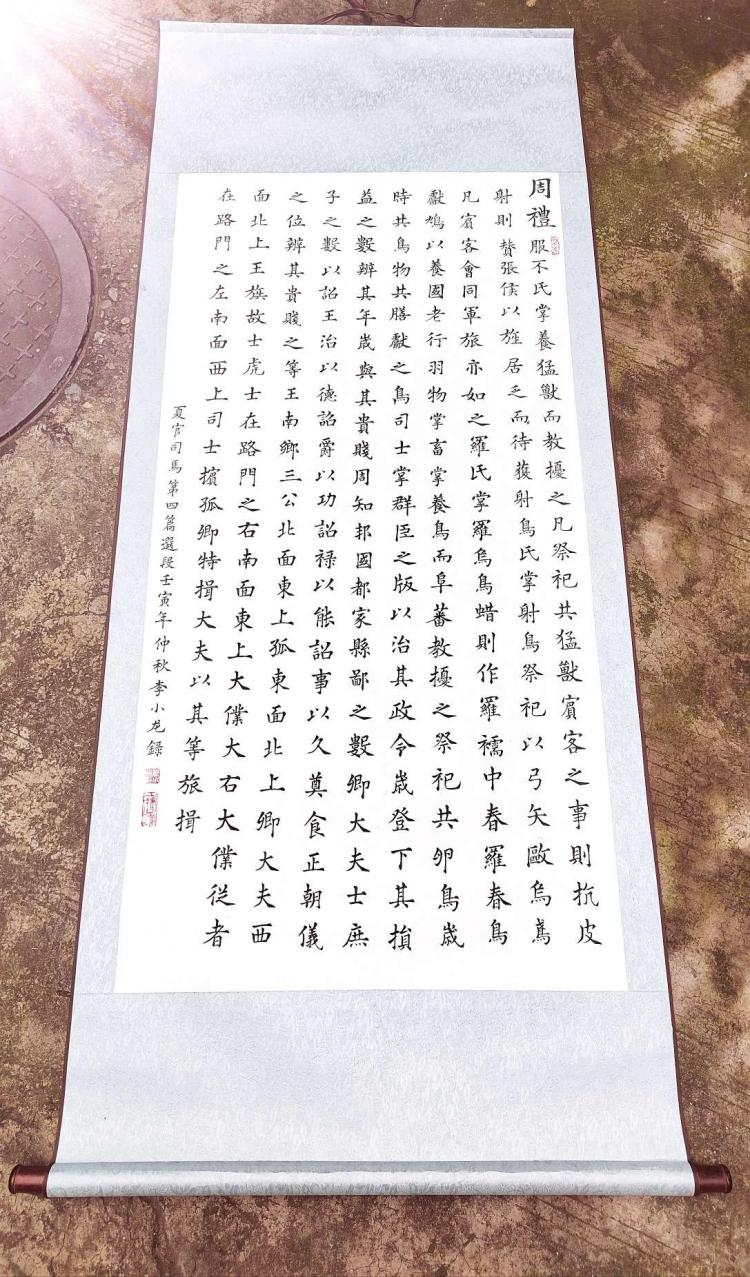 周禮 服不氏掌養猛獸而教擾之凡祭祀共猛獸賓客之事則抗皮
射則贊張侯以旌居乏而待獲射鳥氏掌射鳥祭祀以弓矢歐烏鳶
凡賓客會同軍旅亦如之羅氏掌羅烏鳥蜡則作羅襦中春羅春鳥
獻鳩以養國老行羽物掌畜掌養鳥而阜蕃教擾之祭祀共卵鳥歲
時共鳥物共膳獻之鳥司士掌群臣之版以治其政令歲登下其損
益之數辨其年歲與其貴賤周知邦國都家縣鄙之數卿大夫士庶
子之數以詔王治以德詔爵以功詔祿以能詔事以久奠食正朝儀
之位辨其貴賤之等王南鄉三公北面東上孤東面北上卿大夫西
面北上王族故士虎士在路門之右南面東上大僕大右大僕從者
在路門之左南面西上司士擯孤卿特揖大夫以其等旅揖
夏官司馬第四篇選段壬寅年仲秋李小龙錄